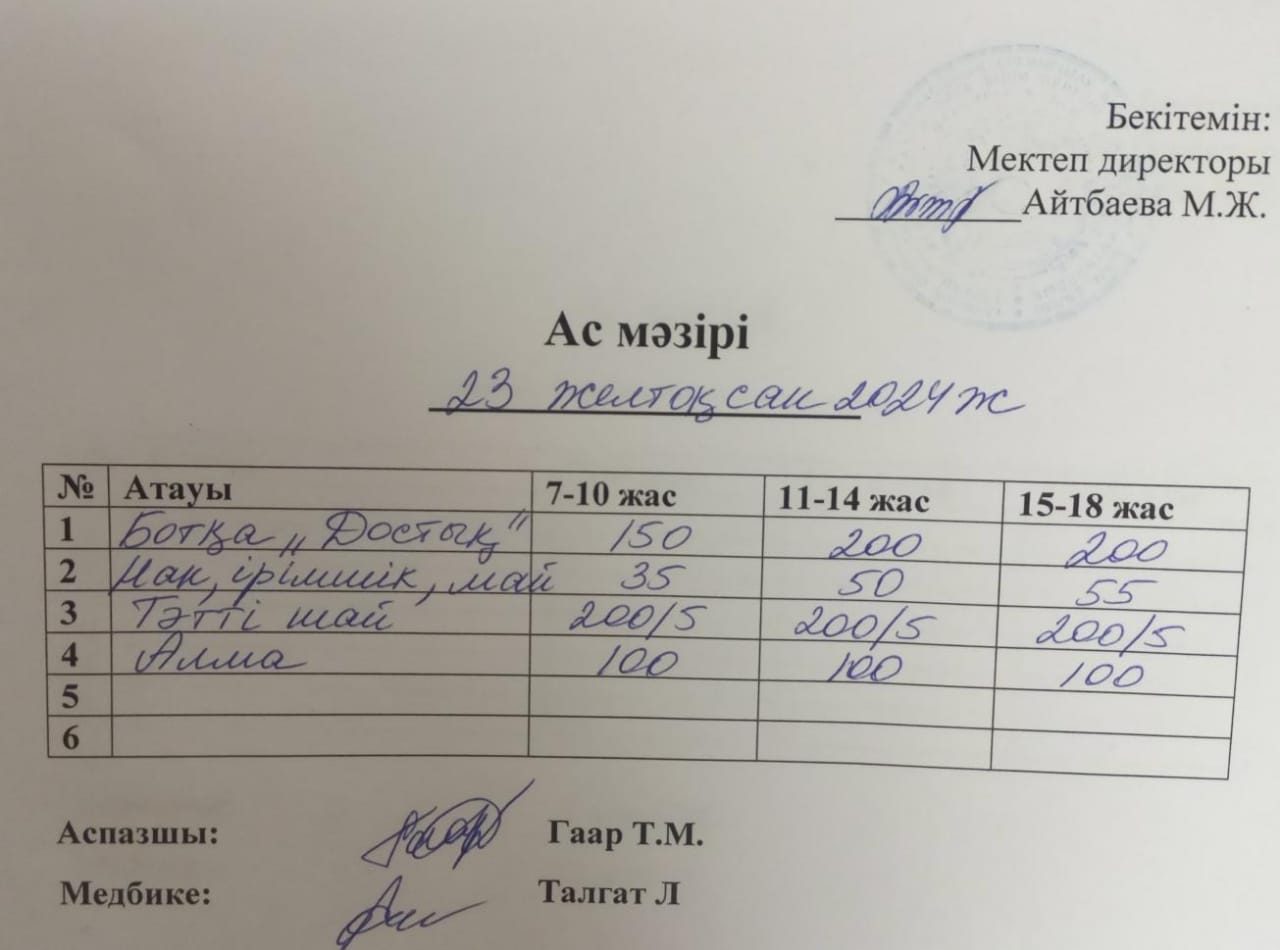 Бекітемін:
Мектеп директоры
Айтбаева М.Ж.
Ас мәзірі
23 желтоқсан 2024 ж
№ Атауы 7-10 жас 11-14 жас 15-18 жас
1 Ботқа „Достық" 150 200 200
2 Нан, ірімшік, май 35 50 55
3 Тәтті шай 200/5 200/5 200/5
4 Алма 100 100 100
5
6
Аспазшы: Гаар Т.М.
Медбике: Талгат Л